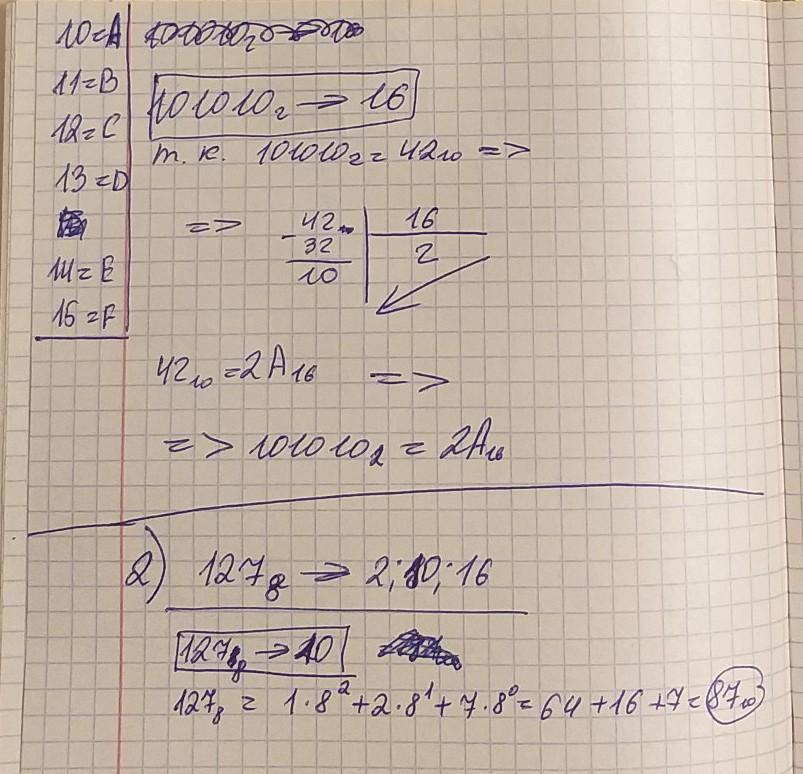 10=A
11=B
12=C
13=D
14=E
15=F
101010₂ → 16
т. к. 101010₂ = 42₁₀ =>
=> 42 | 16
- 32 | 2
10
42₁₀ = 2A₁₆ =>
=> 101010₂ = 2A₁₆
2) 127₈ → 2; 10; 16
127₈ → 10
127₈ = 1·8² + 2·8¹ + 7·8⁰ = 64 + 16 + 7 = 87₁₀